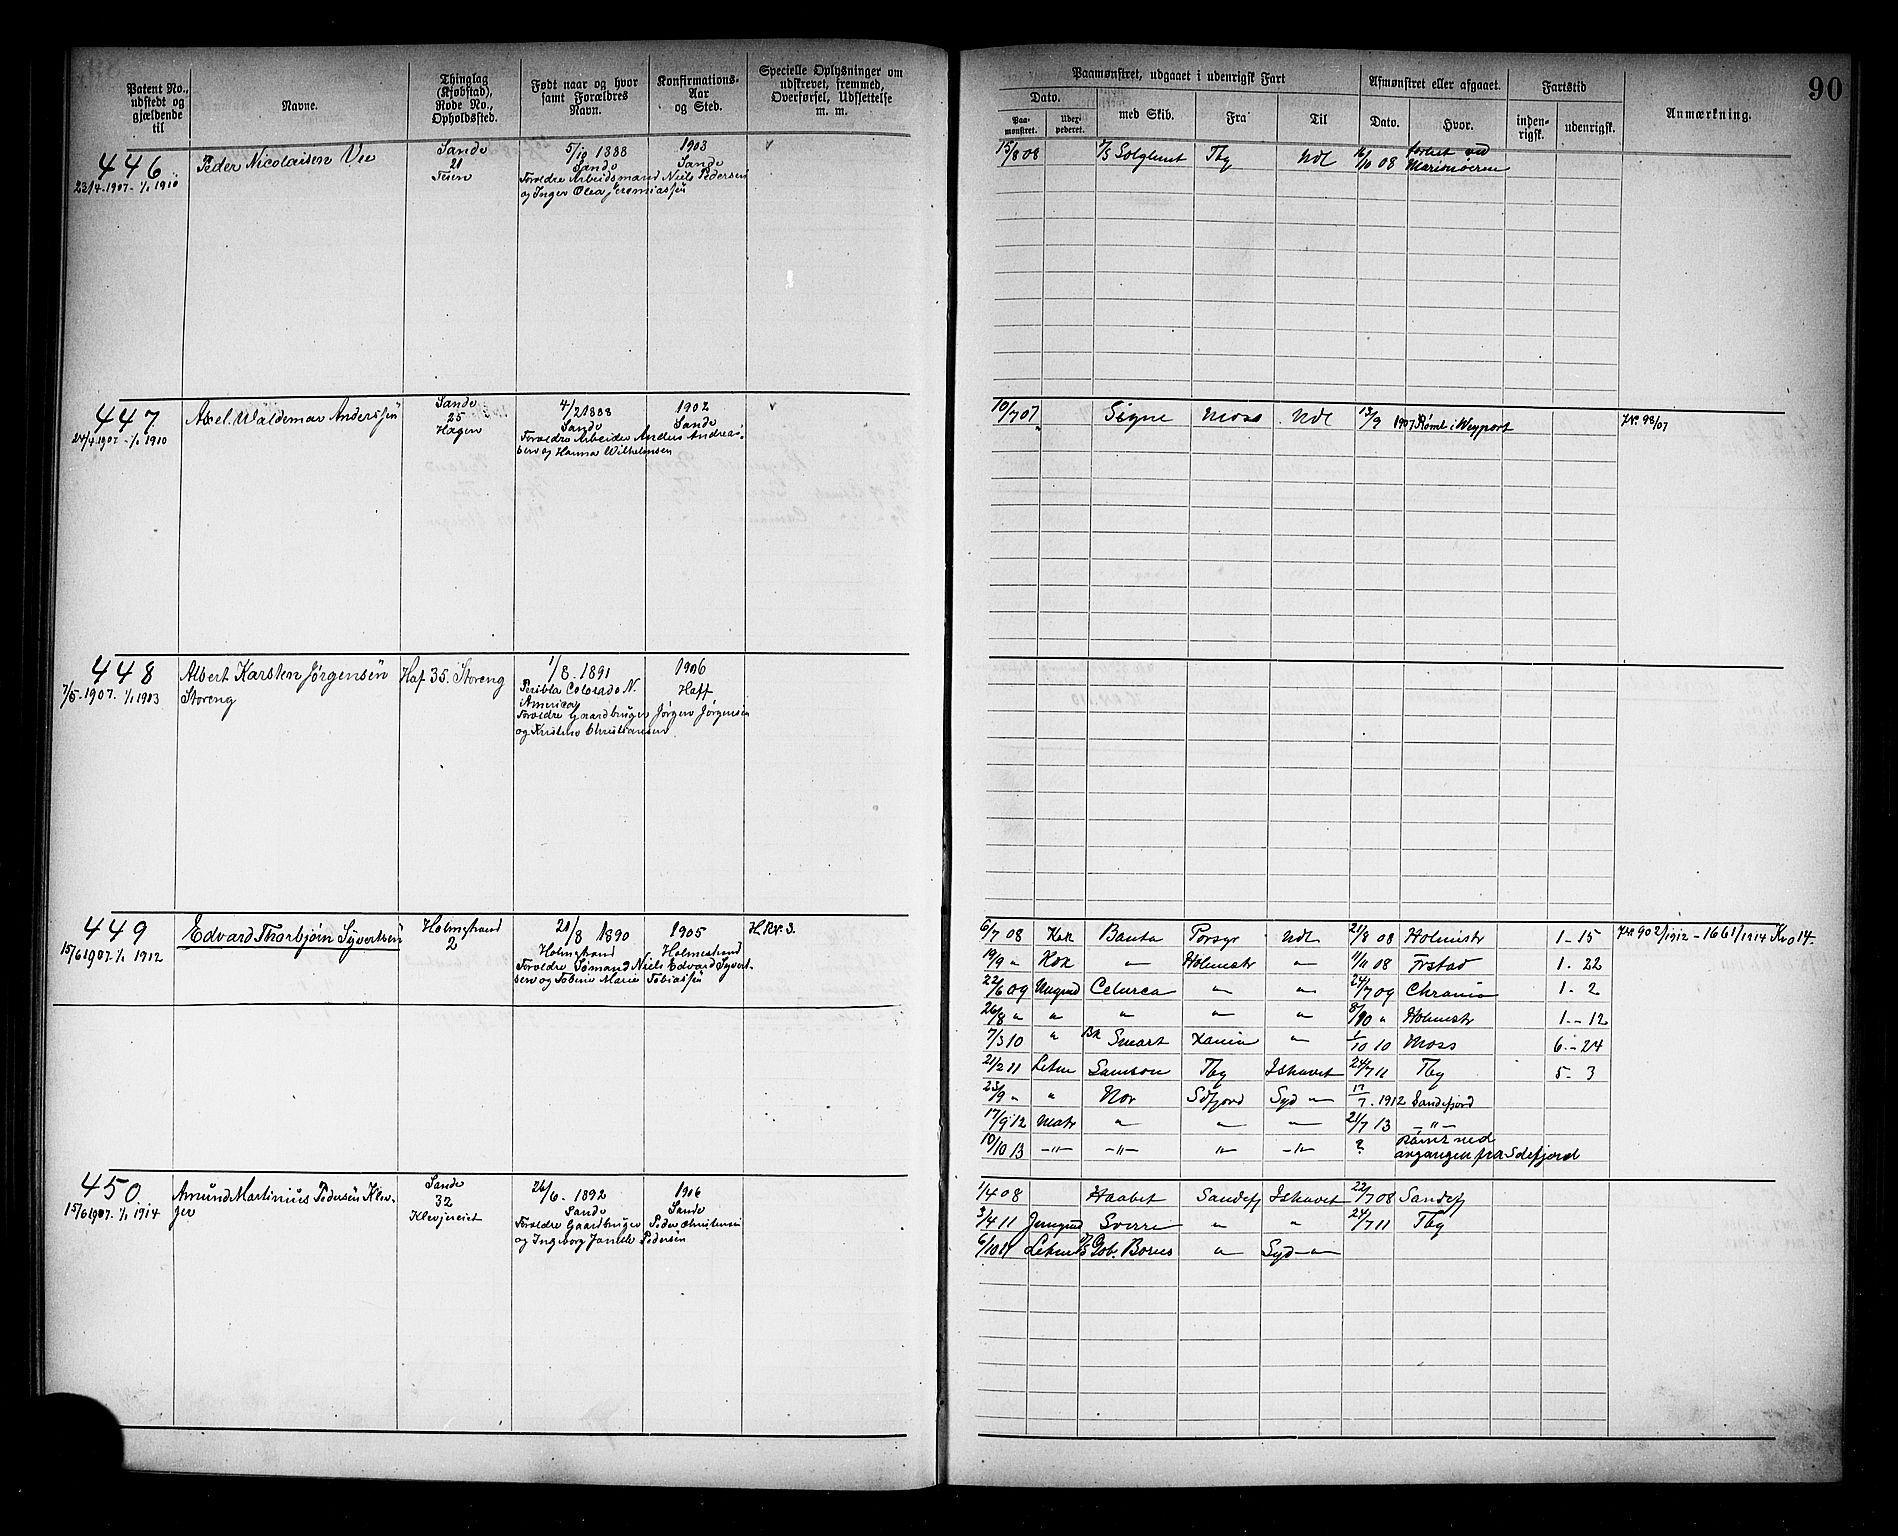 90
Patent No., udstedt og gjældende til
Navne.
Thinglag (Kjøbstad), Rode No., Opholdssted.
Født naar og hvor samt Forældres Navn.
Konfirmations-Aar og Sted.
Specielle Oplysninger om udskrevet, fremmed, Overførsel, Udsættelse m. m.
Paamønstret, udgaaet i udenrigsk Fart
Dato.
Paa-mønstret.
med Skib.
Fra
Til
Afmønstret eller afgaaet.
Dato.
Hvor.
Fartstid
inden-rigsk.
udenrigsk.
Anmærkning.
446
23/4 1907 - 1/1 1910
Peder Nicolaisen Vee
Sande
21
5/10 1888
Sande
Forældre Arbeidsmand Niels Pedersen
og Inger Olea Jeremiassen
1903
Sande
15/8 08
Solglimt Tbg Udl
16/10 08
447
24/4 1907 - 1/1 1910
Axel Waldemar Anderssen
Sande
25
Hagen
4/2 1888
Sande
Forældre Arbeider Anders Andreas-
sen og Hanna Wilhelmsen
1902
Sande
10/7 07 Signe Moss Udl 13/9 1907 Rømt i Weyport
Kr. 98/07
448
7/5 1907 - 1/1 1903
Albert Karsten Jørgensen
Storeng
Haf 35. Storeng
1/8. 1891
Colorado N.
America
Forældre Gaardbruger Jørgen Jørgensen
og Kristine Christiansen
1906
Haff
449
15/6 1907 - 1/1 1912
Edvard Thorbjørn Syvertsen
Holmestrand
2
21/8 1890
Holmestrand
Forældre Sømand Niels Edvard Syvert-
sen og Tobine Marie Tobiassen
1905
Holmestrand
6/7 08 Kok Banta Porsgr Udl 21/8 08 Holmstr 1 - 15
Kr. 902/1912 - 1661/1914
19/9 " Kok " Holmstr " 11/11 08 Frstad 1. 22
22/6 09 Ungmd Celurca " " 24/7 09 Chrania 1. 2
26/8 " " " " " 8/10 " Holmstr 1 - 12
7/3 10 " Bk Smart " 1/10 10 Moss 6 - 24
21/2 11 Letm Samson Tbg Ishavet 24/7 11 Tbg 5 - 3
23/9 " " Nor Sdfjord Syd " 17/7. 1912 Sandefjord
17/9 12 Matr " " " 21/7 13 - " -
10/10 13 - " - - " - " - " - ? Rømt ved
avgangen fra Sdefjord
450
15/6 1907 - 1/1 1914
Amund Martinius Pedersen Klev-
jer
Sande
32
Klevjereiet
26/6. 1892
Sande
Forældre Gaardbruger Peder Christensen
og Ingeborg Pedersen
1906
Sande
1/4 08 Haabet Sandefj Ishavet 22/7 08 Sandefj
3/4 11 Jungmd Sverre " " 24/7 11 Tbg
6/10 11 Letm Gob. Bories " Syd "